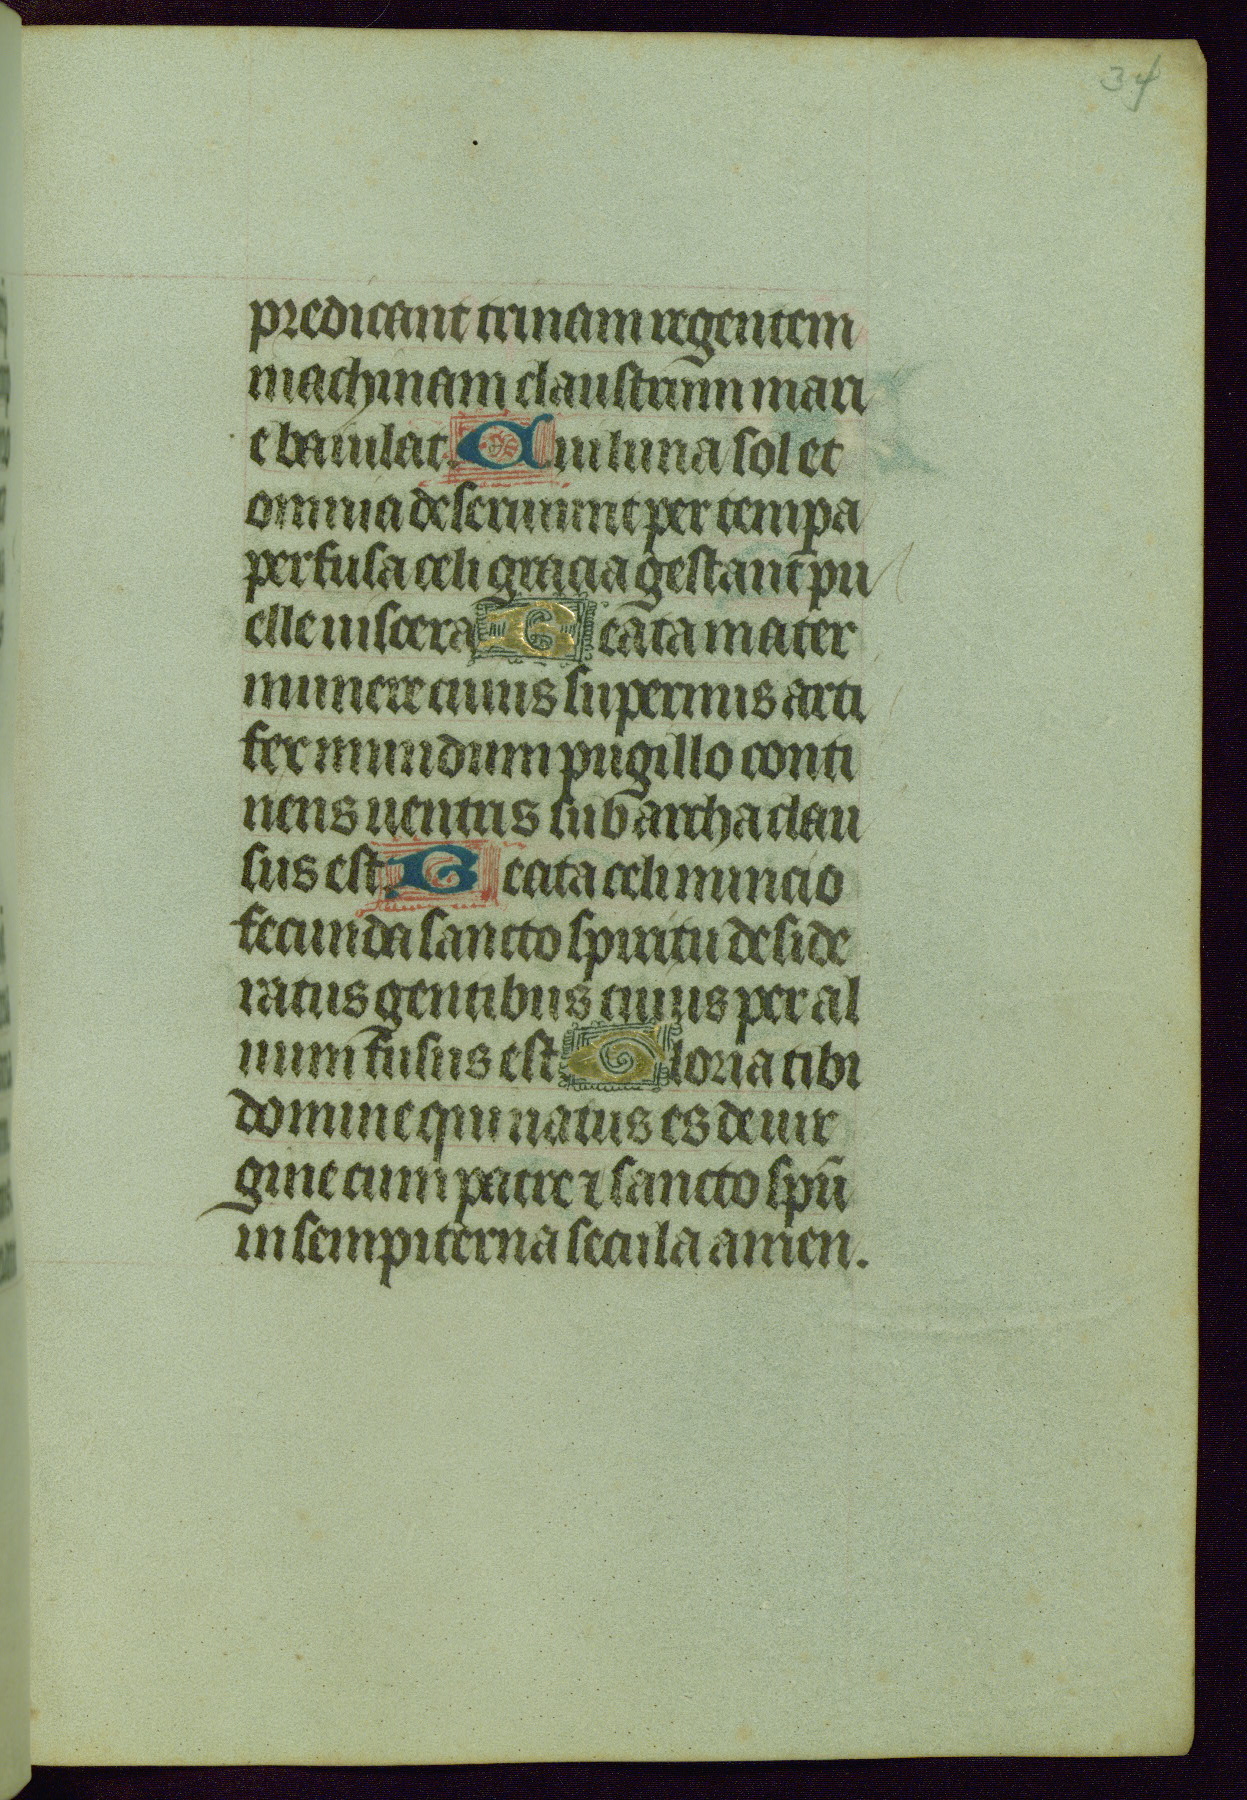 34
predicant trinam regentem
machinam claustrum mari
e baiulat. Cui luna sol et
omnia deseruiunt per tempa
perfusa celi gracia gestant pu
elle uiscera Beata mater
munere cuius supernus arti
fex mundum pugillo conti
nens uentris sub archa clau
sus est. Beata celi nuncio
fecunda sancto spiritu deside
ratus gentibus cuius per al
uum fusus est Gloria tibi
domine qui natus es de uir
gine cum patre ⁊ sancto spū
in sempiterna secula amen.